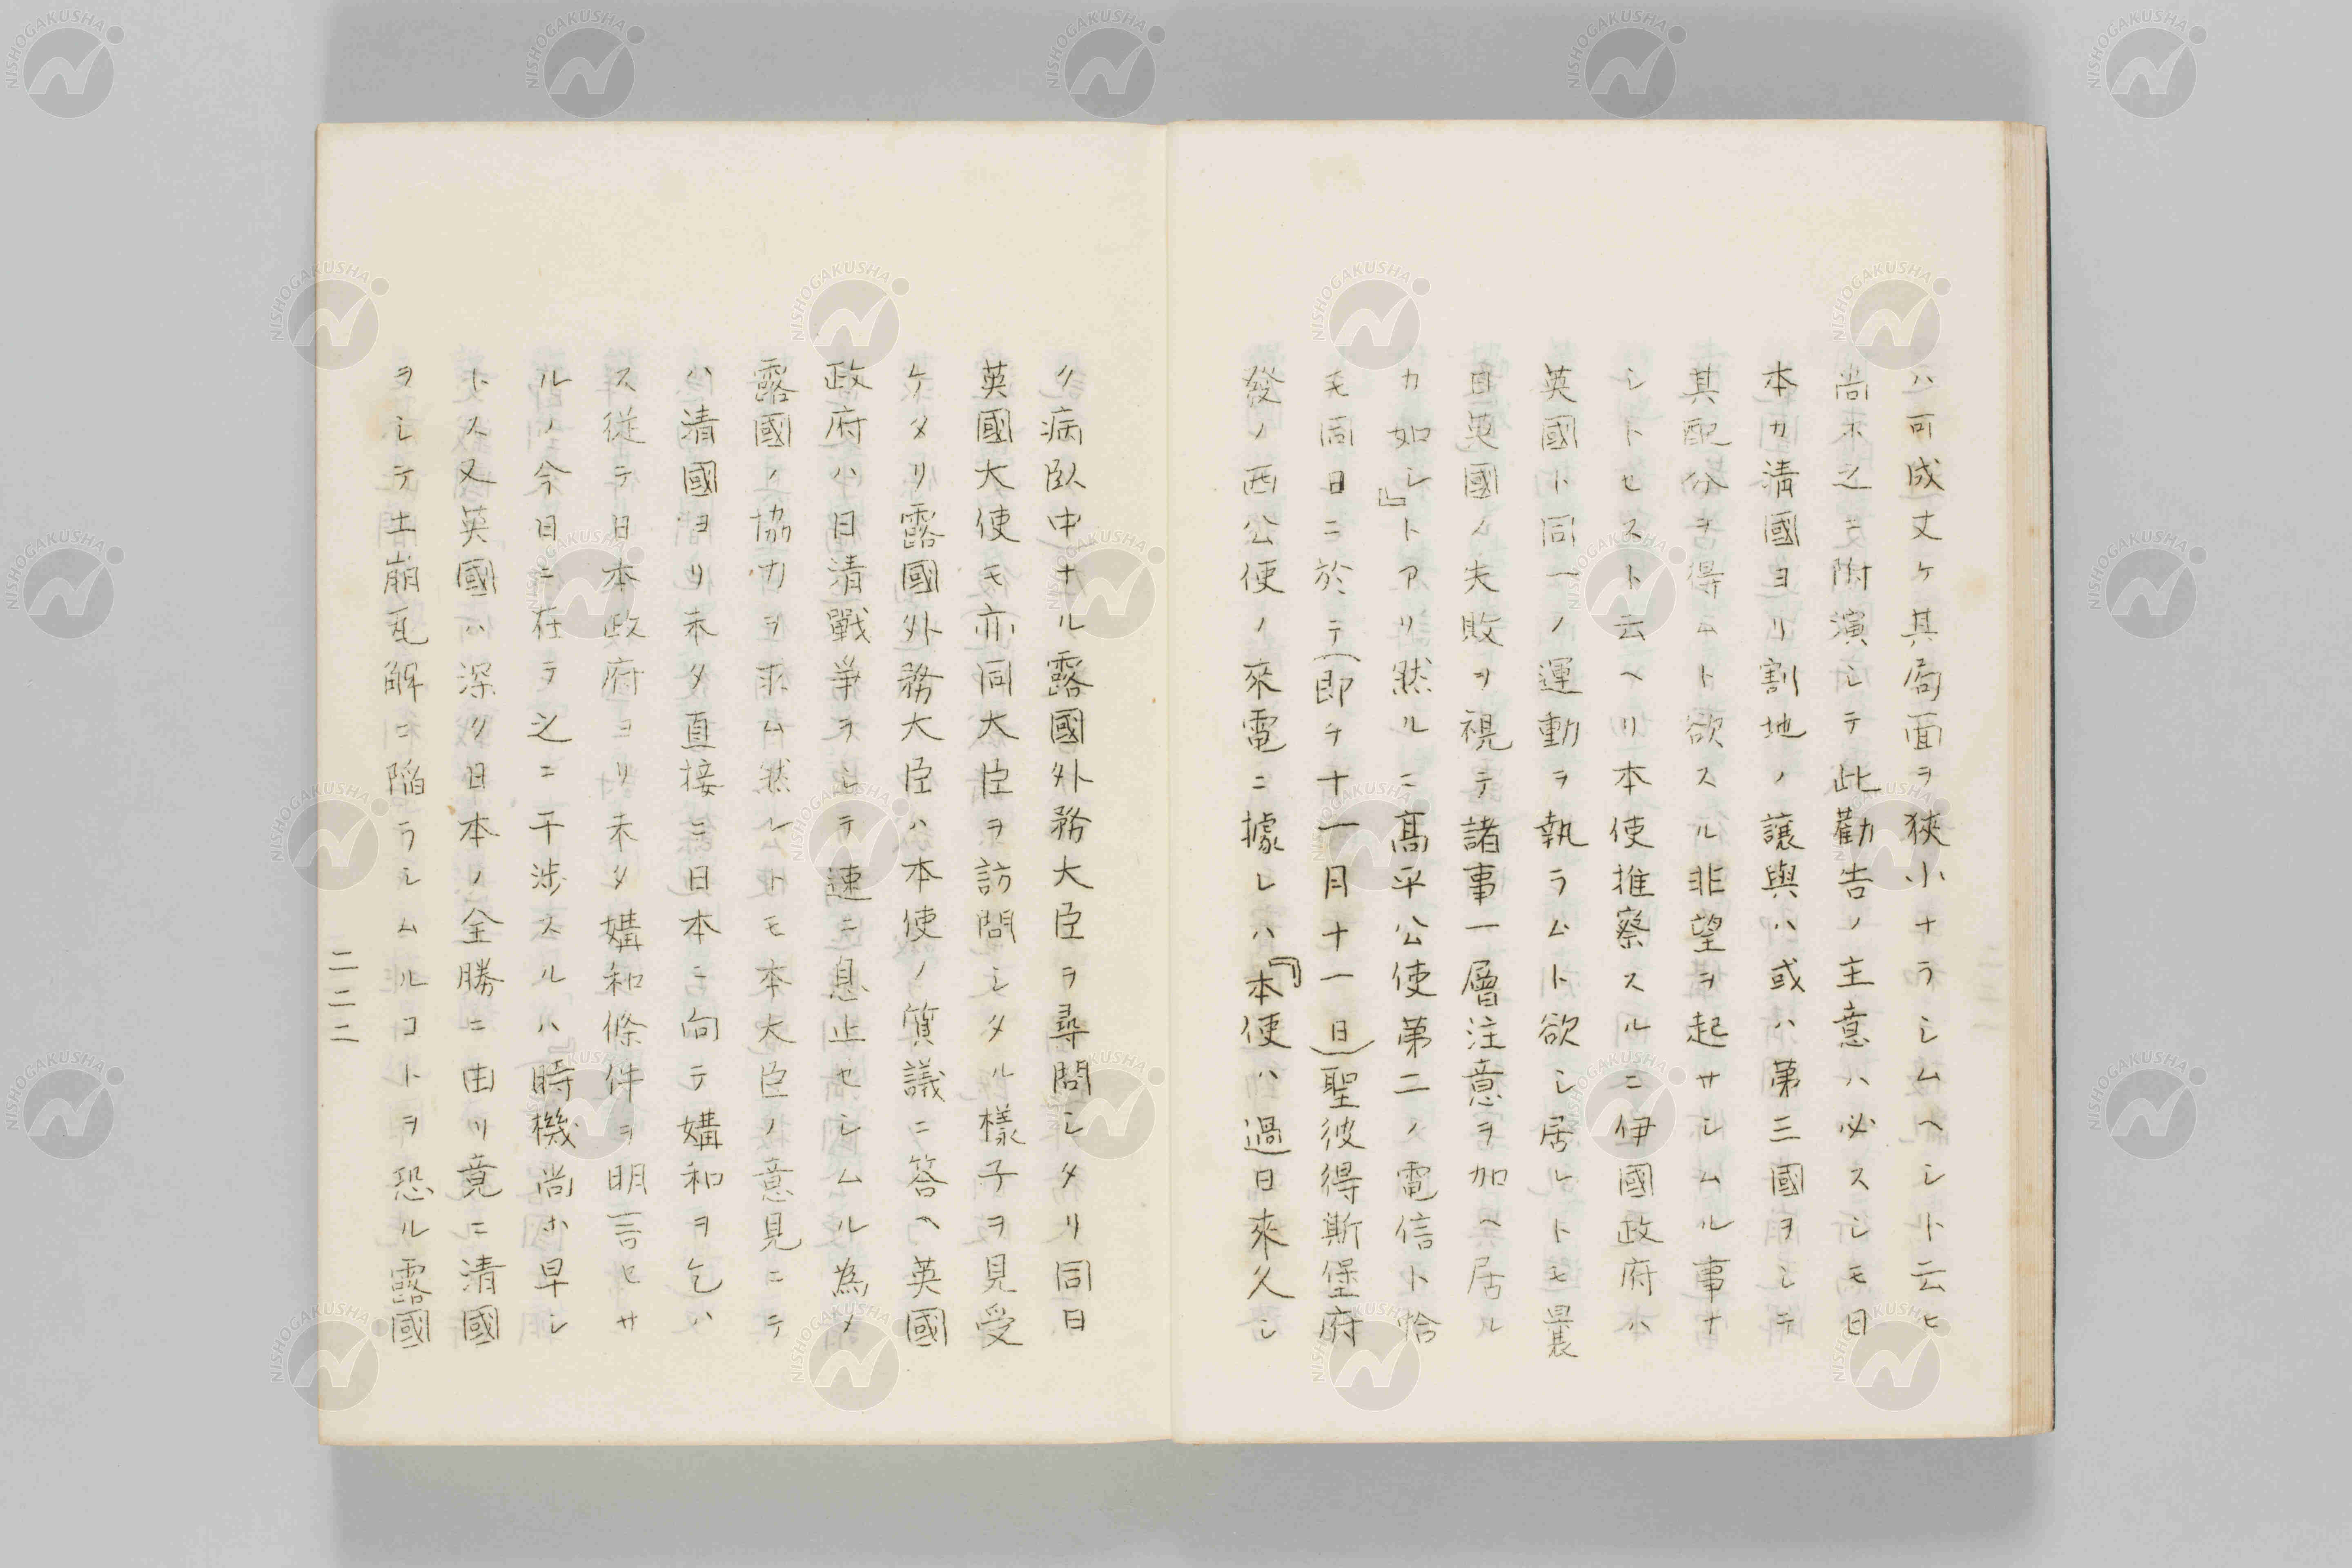 ハ可成丈ケ其局面ヲ狹小ナラシムヘシト云ヒ
尚ホ之ヲ附演シテ此勸告ノ主意ハ必スシモ日
本カ清國ヨリ割地ノ讓與ハ或ハ第三國ヲシテ
其配分ヲ得ムト欲スル非望ヲ起サシムル事ナ
シトセスト云ヘリ本使推察スルニ伊國政府ハ
英國ト同一ノ運動ヲ執ラムト欲シ居レトモ曩
日英國ノ失敗ヲ視テ諸事一層注意ヲ加ヘ居ル
カ如シ』トアリ然ルニ髙平公使第二ノ電信ト恰
モ同日ニ於テ(即チ十一月十一日)聖彼得斯堡府
發ノ西公使ノ來電ニ據レハ『本使ハ過日來久シ
ク病臥中ナル露國外務大臣ヲ尋問シタリ同日
英國大使モ亦同大臣ヲ訪問シタル様子ヲ見受
ケタリ露國外務大臣ハ本使ノ質議ニ答ヘ英國
政府ハ日清戰爭ヲシテ速ニ息止セシムル為メ
露國ノ協力ヲ求ム然レトモ本大臣ノ意見ニテ
ハ清國ヨリ未タ直接ニ日本ニ向テ媾和ヲ乞ハ
ス從テ日本政府ヨリ未タ媾和條件ヲ明言セサ
ルノ今日ニ在ラ之ニ干渉スルハ時機尚ホ早シ
トス又英國ハ深ク日本ノ全勝ニ由リ竟ニ清國
ヲシテ土崩瓦解ニ陥ラシムルコトヲ恐ル露國
二二二
NISHOGAKUSHA